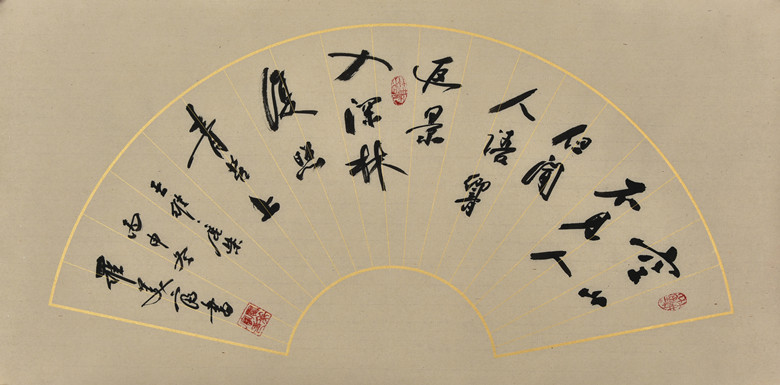 空山
不見人
但聞
人語響
返景
入深林
復照
青苔上
王維鹿柴
丙申冬
書